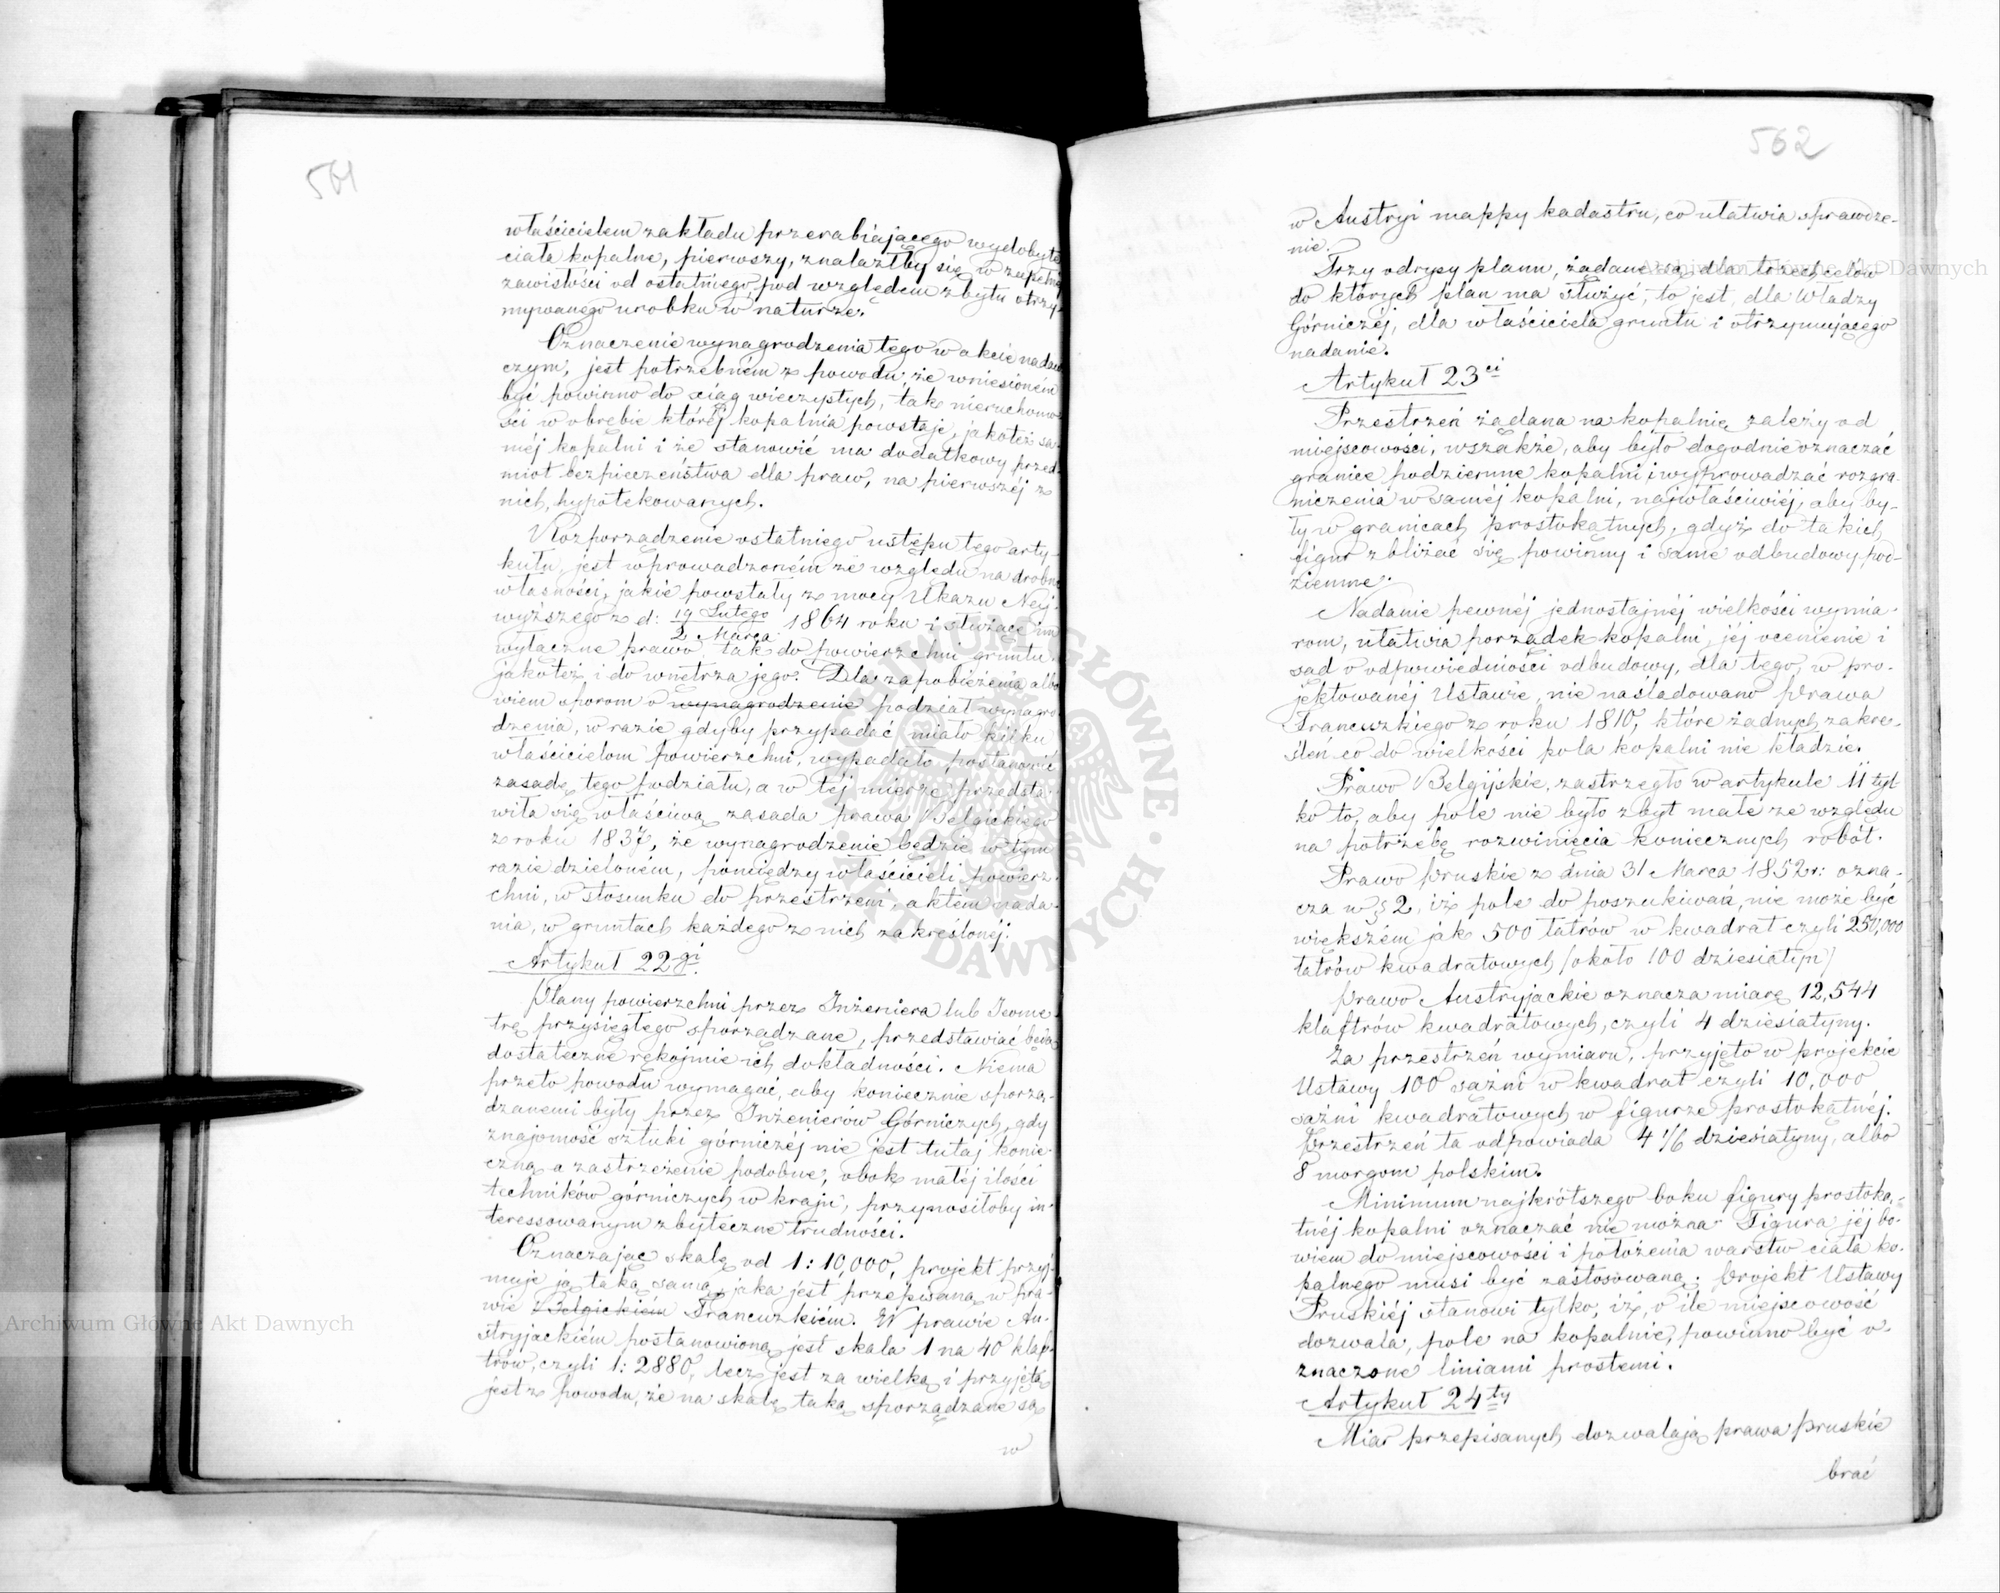 561
właścicielem zakładu przerabiającego wydobyte
ciała kopalne, pierwszy, znalazłby się w zupełnéj
zawisłości od ostatniego pod względem zbytu otrzy-
mywanego urobku w naturze.
Oznaczenie wynagrodzenia tego w akcie nadaw
czym, jest potrzebném z powodu, że wniesioném
być powinno do xiąg wieczystych, tak nieruchomo
ści w obrębie któréj kopalnia powstaje, jakoteż sa-
méj kopalni i że stanowić ma dodatkowy przed-
miot bezpieczeństwa dla praw, na pierwszéj z
nich, hypotekowanych.
Rozporządzenie ostatniego ustępu tego arty-
kułu, jest wprowadzoném ze względu na drobne
własności, jakie powstały z mocy Ukazu Naj-
wyższego z d: 19 Lutego / 2 Marca 1864 roku i służące im
wyłączne prawo, tak do powierzchni gruntu
jakoteż i do wnętrza jego. Dla zapobieżenia albo
wiem sporom o wynagrodzenie podział wynagro-
dzenia, w razie gdyby przypadać miało kilku
właścicielom powierzchni, wypadało postanowić
zasadę tego podziału, a w téj mierze przedsta-
wiła się właściwą zasada prawa Belgickiego
z roku 1837, że wynagrodzenie będzie w tym
razie dzieloném, pomiędzy właścicieli powierz-
chni, w stosunku do przestrzeni, aktem nada-
nia, w gruntach każdego z nich zakreślonéj.
Artykuł 22gi
Plany powierzchni przez Inżeniera lub Jeome-
trę przysięgłego sporządzane, przedstawiać będą
dostateczne rękojmie ich dokładności. Niema
przeto powodu wymagać, aby koniecznie sporzą-
dzanemi były przez Inżenierów Górniczych, gdy
znajomość sztuki górniczéj nie jest tutaj konie-
czną a zastrzeżenie podobne, obok małéj ilości
techników górniczych w kraju, przynosiłoby in-
teressowanym zbyteczne trudności.
Oznaczając skalę od 1:10,000, projekt przyj-
muje ją taką samą, jaka jest przepisaną w pra-
wie Belgickiém Francuzkiém. W prawie Au-
stryjackiém postanowioną jest skala 1 na 40 klaf-
trów, czyli 1:2880, lecz jest za wielką i przyjętą
jest z powodu, że na skalę taką sporządzane są
w
562
w Austryi mappy kadastru, co ułatwia sprawdze-
nie.
Trzy odrysy planu, żądane są, dla trzech celów
do których plan ma służyć, to jest, dla Władzy
Górniczéj, dla właściciela gruntu i otrzymującego
nadanie.
Artykuł 23ci
Przestrzeń żądana na kopalnię zależy od
miejscowości, wszakże, aby było dogodnie oznaczać
granice podziemne kopalni i wyprowadzać rozgra-
niczenia w saméj kopalni, najwłaściwiéj, aby by-
ły w granicach prostokątnych, gdyż do takich
figur zbliżać się powinny i same odbudowy pod-
ziemne.
Nadanie pewnéj jednostajnéj wielkości wymia-
rom, ułatwia porządek kopalni, jéj ocenienie i
sąd o odpowiedniości odbudowy, dla tego, w pro-
jektowanéj Ustawie, nie naśladowano Prawa
Francuzkiego z roku 1810, które żadnych zakre-
śleń co do wielkości pola kopalni nie kładzie.
Prawo Belgijskie, zastrzegło w artykule 11 tyl
ko to, aby pole nie było zbyt małe ze względu
na potrzebę rozwinięcia koniecznych robót.
Prawo Pruskie z dnia 31 Marca 1852 r: ozna-
cza w § 2, iż pole do poszukiwań, nie może być
większém jak 500 łatrów w kwadrat czyli 250,000
łatrów kwadratowych (około 100 dziesiatyn)
Prawo Austryjackie oznacza miarę 12,544
klaftrów kwadratowych, czyli 4 dziesiatyny.
Za przestrzeń wymiaru, przyjęto w projekcie
Ustawy 100 sążni w kwadrat czyli 10,000
sążni kwadratowych w figurze prostokątnéj.
Przestrzeń ta odpowiada 4 1/6 dziesiatyny, albo
8 morgom polskim.
Minimum najkrótszego boku figury prostoką-
tnéj kopalni oznaczać nie można. Figura jéj bo-
wiem do miejscowości i położenia warstw ciała ko-
palnego musi być zastosowaną. Projekt Ustawy
Pruskiéj stanowi tylko, iż, o ile miejscowość
dozwala, pole na kopalnie, powinno być o-
znaczone liniami prostemi.
Artykuł 24ty
Miar przepisanych dozwalają prawa Pruskie
brać
Archiwum Główne Akt Dawnych
Archiwum Główne Akt Dawnych
ARCHIWUM GŁÓWNE · AKT DAWNYCH ·